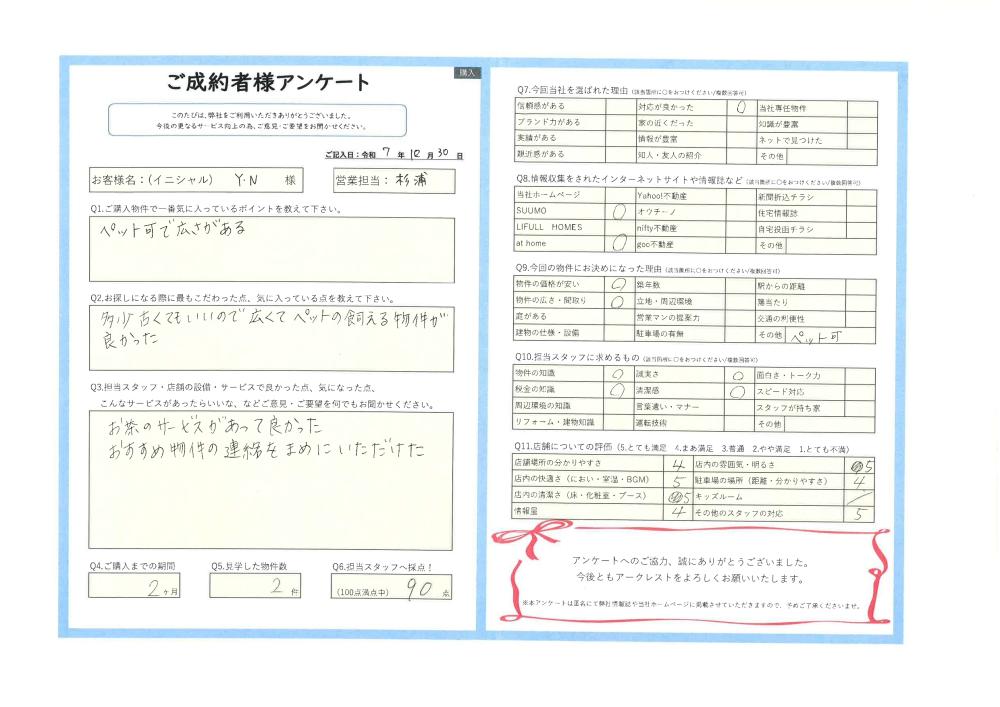 購入
ご成約者様アンケート
このたびは、弊社をご利用いただきありがとうございました。
今後の更なるサービス向上の為、ご意見・ご要望をお聞かせください。
ご記入日：令和 7 年 12 月 30 日
お客様名：(イニシャル) Y.N 様
営業担当：杉浦
Q1.ご購入物件で一番気に入っているポイントを教えて下さい。
ペット可で広さがある
Q2.お探しになる際に最もこだわった点、気に入っている点を教えて下さい。
多少古くてもいいので広くてペットの飼える物件が
良かった
Q3.担当スタッフ・店舗の設備・サービスで良かった点、気になった点、
こんなサービスがあったらいいな、などご意見・ご要望を何でもお聞かせください。
お茶のサービスがあって良かった
おすすめ物件の連絡をまめにいただけた
Q4.ご購入までの期間
2ヶ月
Q5.見学した物件数
2 件
Q6.担当スタッフへ採点！
(100点満点中) 90 点
Q7.今回当社を選ばれた理由 (該当箇所に○をおつけください/複数回答可)
信頼感がある 対応が良かった ○ 当社専任物件
ブランド力がある 家の近くだった 知識が豊富
実績がある 情報が豊富 ネットで見つけた
親近感がある 知人・友人の紹介 その他
Q8.情報収集をされたインターネットサイトや情報誌など (該当箇所に○をおつけください/複数回答可)
当社ホームページ Yahoo!不動産 新聞折込チラシ
SUUMO ○ オウチーノ 住宅情報誌
LIFULL HOMES nifty不動産 自宅投函チラシ
at home ○ goo不動産 その他
Q9.今回の物件にお決めになった理由 (該当箇所に○をおつけください/複数回答可)
物件の価格が安い ○ 築年数 駅からの距離
物件の広さ・間取り ○ 立地・周辺環境 陽当たり
庭がある 営業マンの提案力 交通の利便性
建物の仕様・設備 駐車場の有無 その他 ペット可
Q10.担当スタッフに求めるもの (該当箇所に○をおつけください/複数回答可)
物件の知識 ○ 誠実さ ○ 面白さ・トーク力
税金の知識 ○ 清潔感 ○ スピード対応
周辺環境の知識 言葉遣い・マナー スタッフが持ち家
リフォーム・建物知識 運転技術 その他
Q11.店舗についての評価 (5.とても満足 4.まあ満足 3.普通 2.やや満足 1.とても不満)
店舗場所の分かりやすさ 4 店内の雰囲気・明るさ 5
店内の快適さ（におい・室温・BGM） 5 駐車場の場所（距離・分かりやすさ） 4
店内の清潔さ（床・化粧室・ブース） 5 キッズルーム ／
情報量 4 その他のスタッフの対応 5
アンケートへのご協力、誠にありがとうございました。
今後ともアークレストをよろしくお願いいたします。
※本アンケートは匿名にて弊社情報誌や当社ホームページに掲載させていただきますので、予めご了承くださいませ。